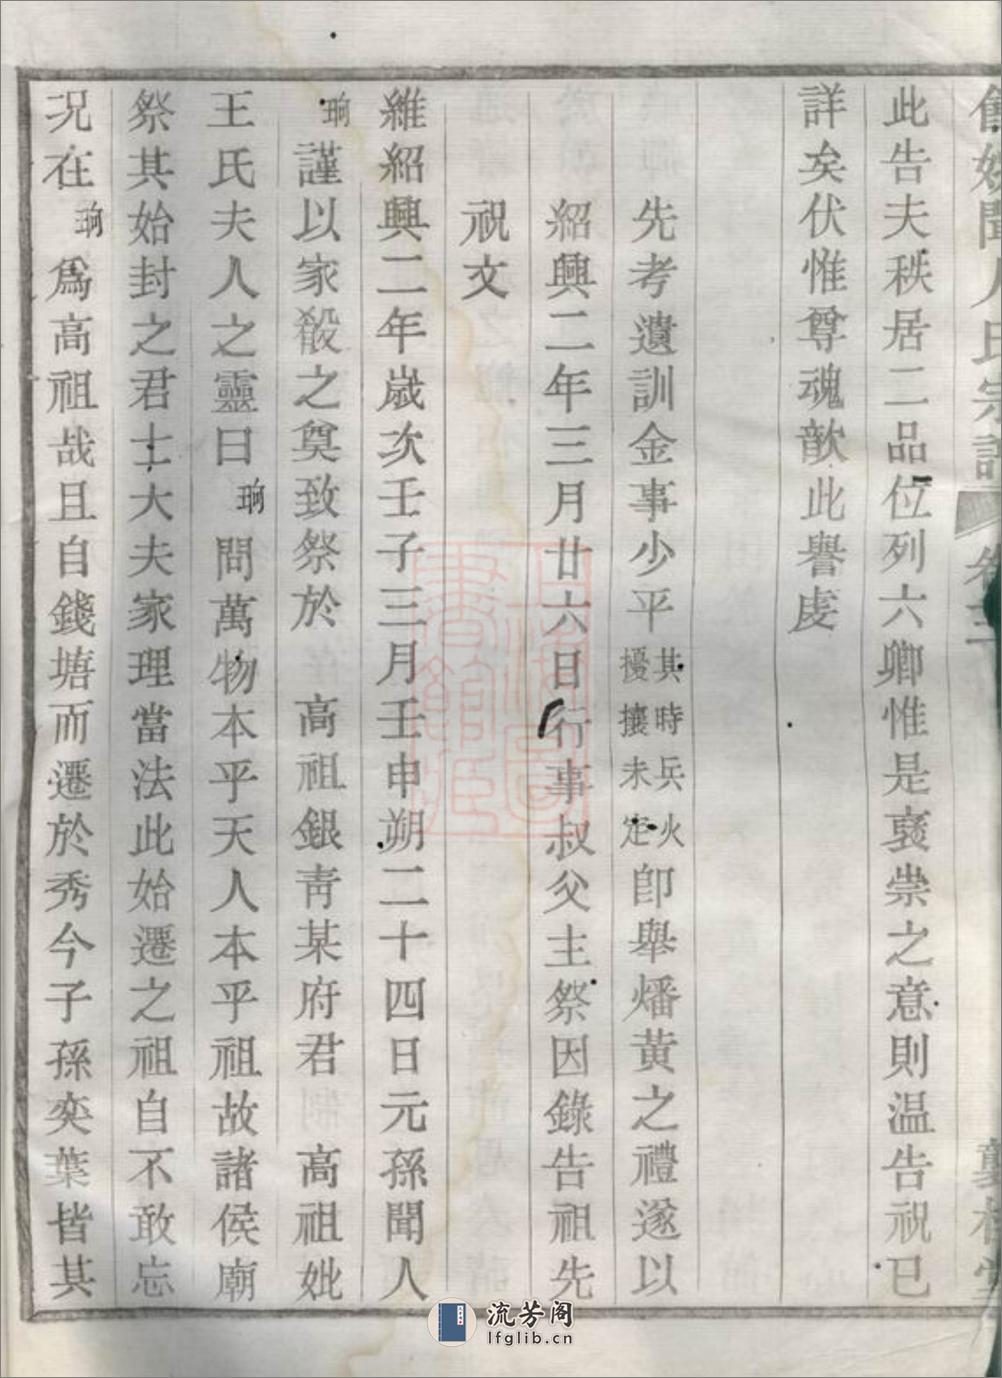 姚聞人氏宗譜
此告夫秩居二品位列六卿惟是褒崇之意則温告祝已
詳矣伏惟尊魂歆此譽䖍
先考遺訓金事少平其時兵火擾攘未定卽舉燔黄之禮遂以
紹興二年三月廿六日行事叔父主祭因錄告祖先
祝文
維紹興二年歲次壬子三月壬申朔二十四日元孫聞人
珦謹以家殽之奠致祭於 高祖銀靑某府君 高祖妣
王氏夫人之靈曰珦問萬物本乎天人本乎祖故諸侯廟
祭其始封之君士大夫家理當法此始遷之祖自不敢忘
况在珦爲高祖哉且自錢塘而遷於秀今子孫奕葉皆其
流芳阁
lfglib.cn